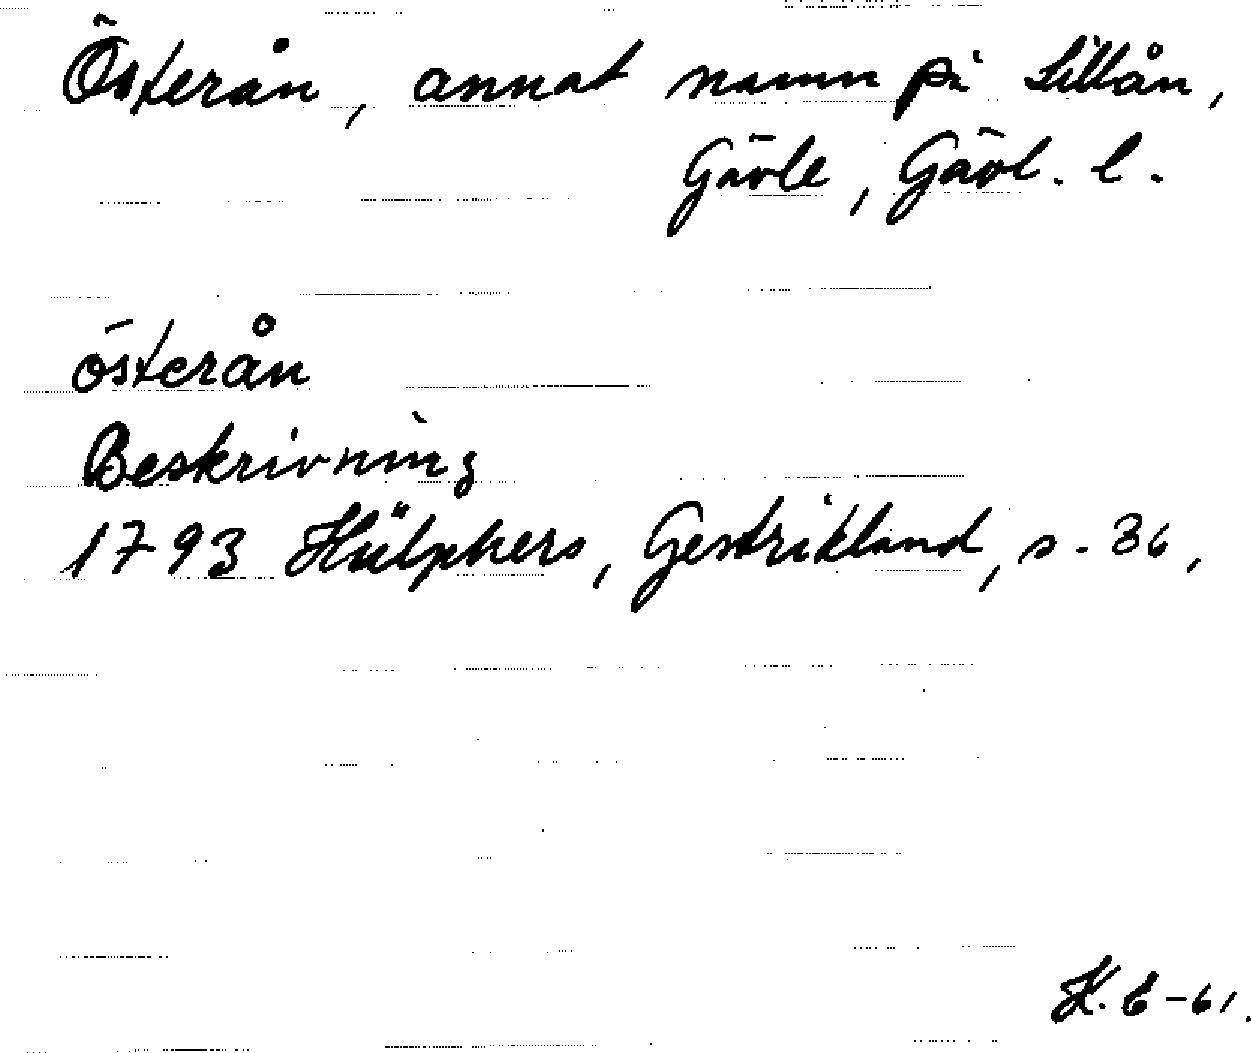 Österån, annat namn på Lillån,
Gävle, Gävl. l.
österån
Beskrivning
1793 Hülphers, Gestrikland, s. 36,
K. E-61.